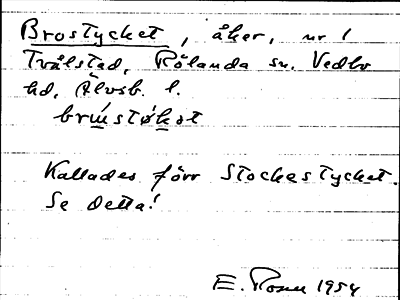 Brostycket, åker, nr 1
Tvålstad, Rölanda sn. Vedbo
hd, Älvsb. l.
Kallades förr Stockestycket.
Se detta!
E. Rosen 1954